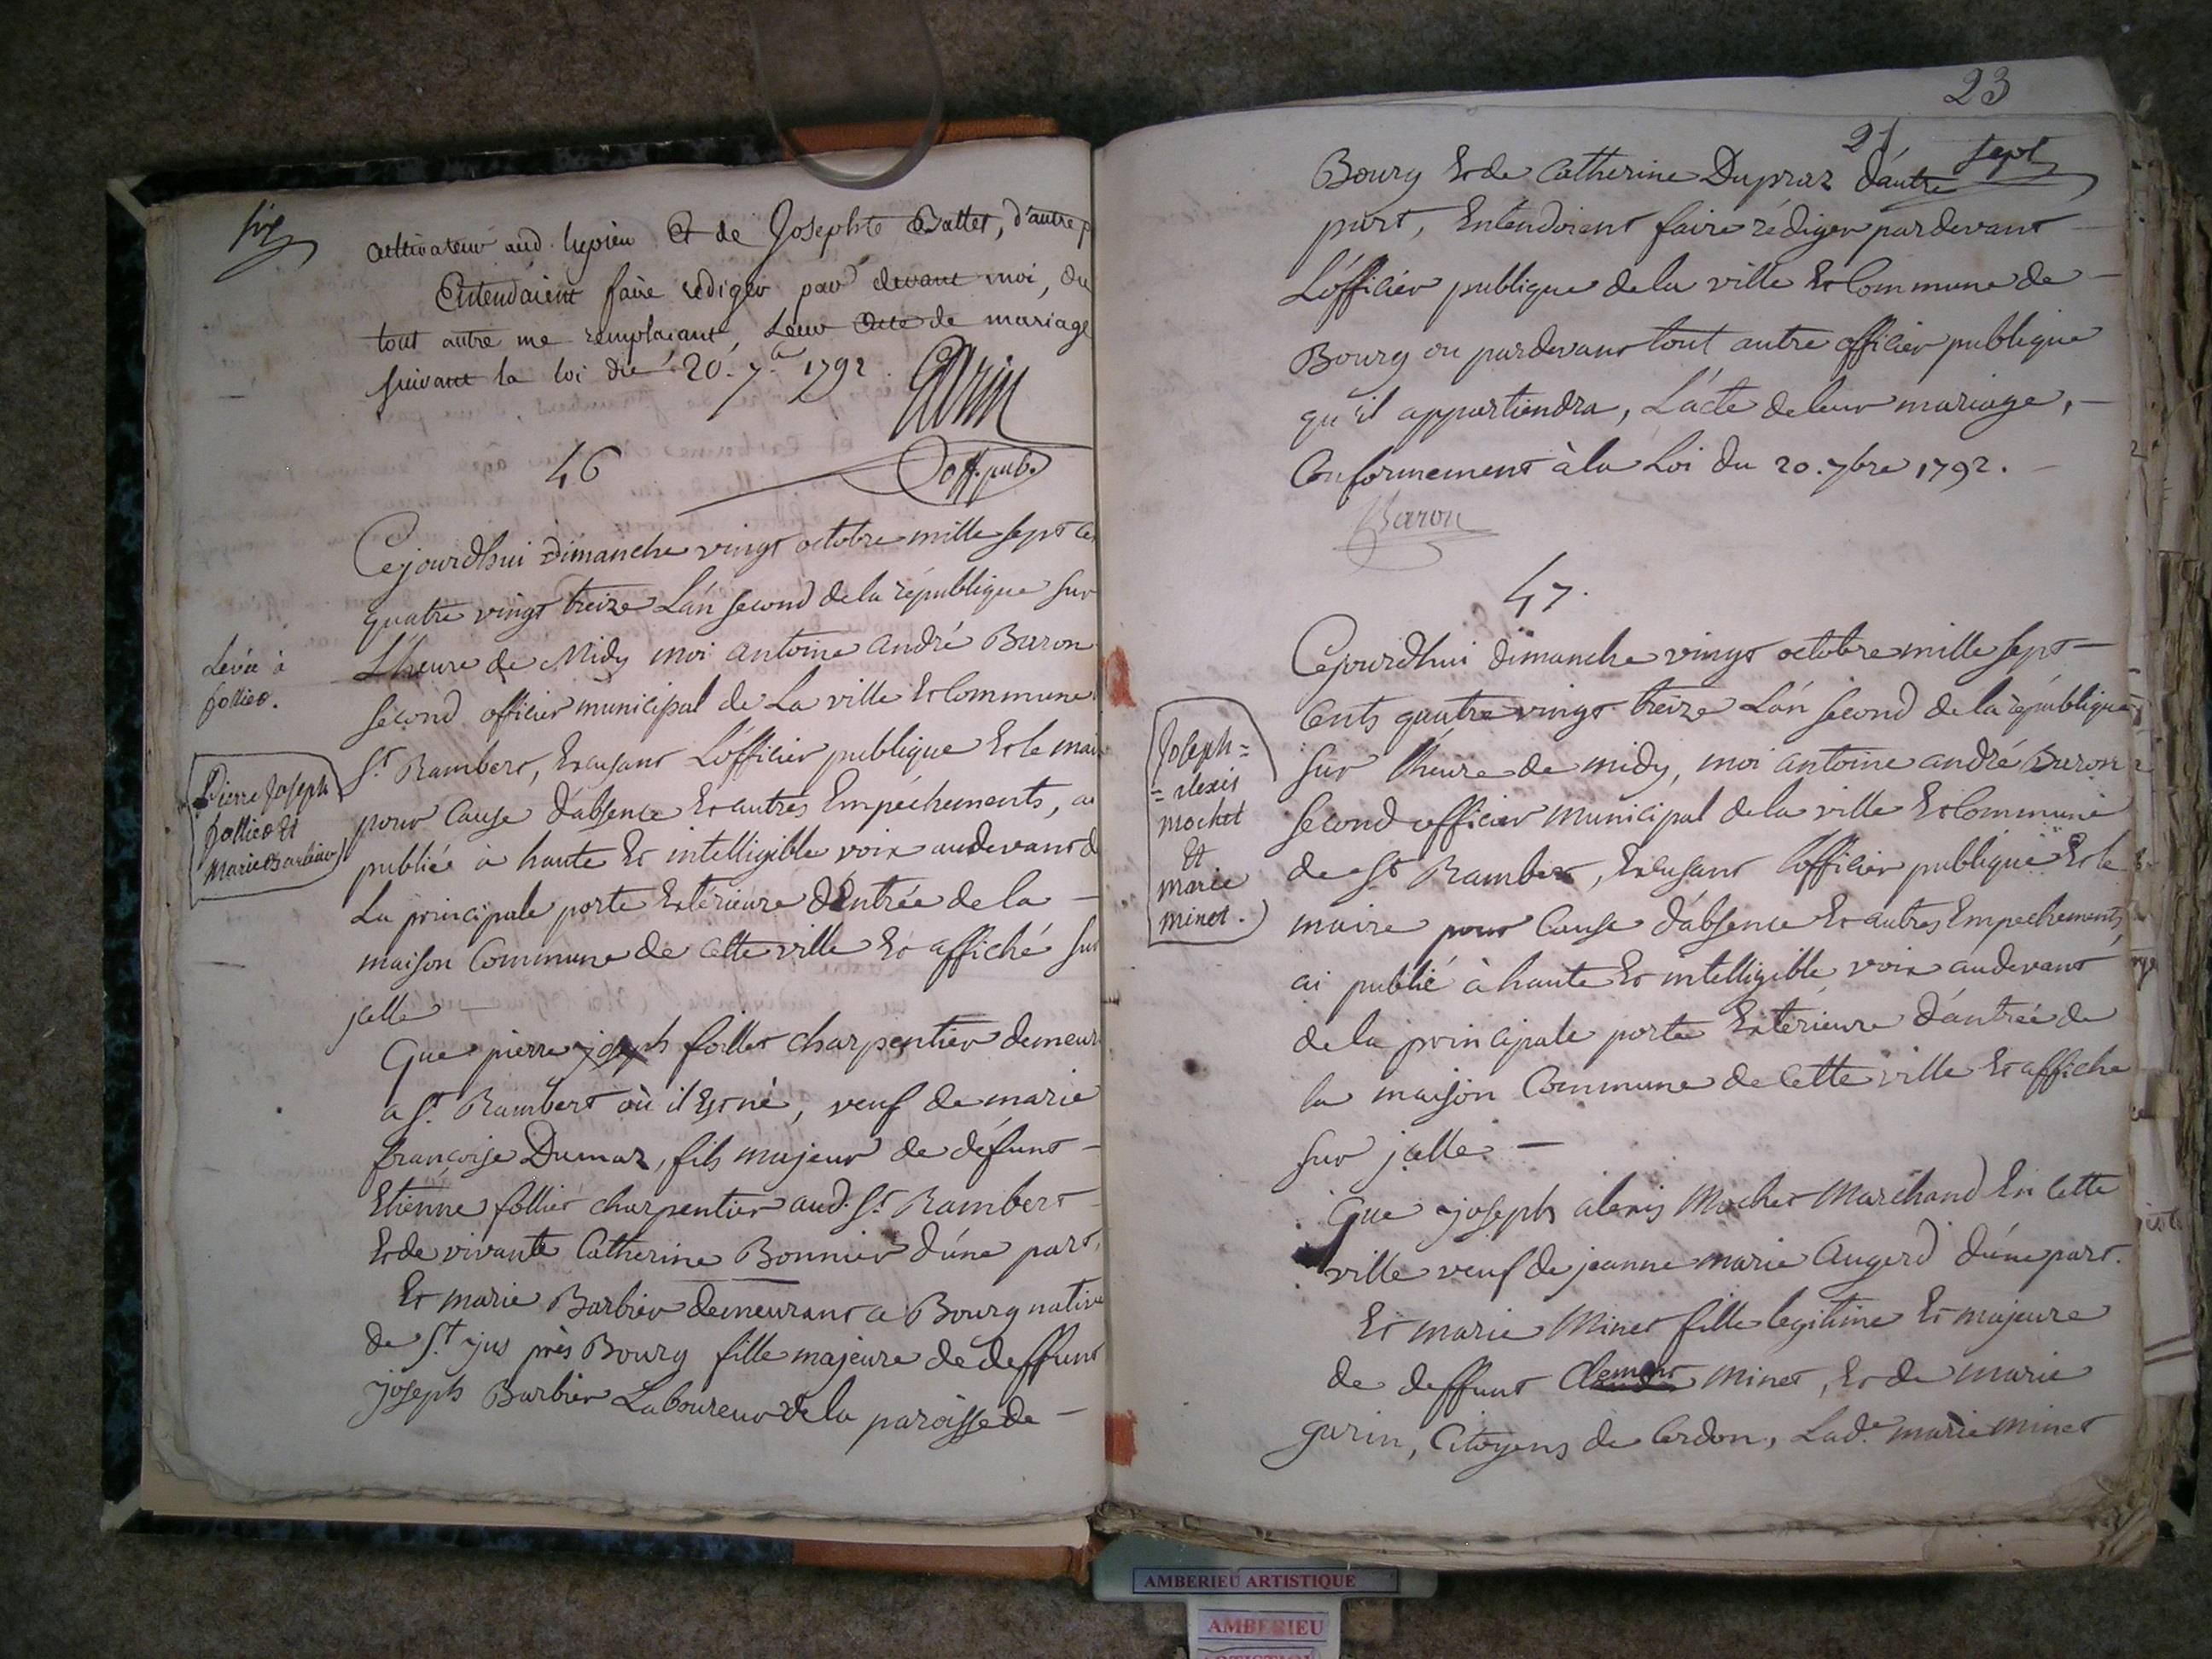 six
cultivateur aud. lupieu Et de Josephte Ballet, d'autre p
Entendaient faire rediger par devant moi, ou
tout autre me remplacant, Leur acte de mariage
suivant la loi du 20. 7.bre 1792.
off. pub.
46
Cejourdhui dimanche vingt octobre mille sept ce
quatre vingt treize L'an second de la république sur
L'heure de Midy moi antoine andré Baron
second officier municipal de La ville Et Commune
St. Rambert, Excusant L'officier publique Et le mair
pour Cause d'absence Et autres Empéchements, ai
publiée à haute Et intelligible voix audevant d
La principale porte Extérieure d'Entrée de la
maison Commune de Cette ville Et affiché sur
jcelle
Levée à
follies.
Pierre Joseph
follies Et
Marie Barbier
Que pierre joseph folliet charpentier demeur
a St. Rambert où il Est né, veuf de marie
françoise Dumaz, fils majeur de défunt
Etiénne folliet charpentier aud. St. Rambert
Et de vivante Catherine Bonnier d'une part,
Et marie Barbier demeurant a Bourg native
de St. jus près Bourg fille majeure de deffunt
joseph Barbier Laboureur de la paroisse de
23
21
sept
Bourg Et de Catherine Dupraz d'autre
part, Entendoient faire rédiger pardevant
L'officier publique de la ville Et Commune de
Bourg ou pardevant tout autre officier publique
qu'il appartiendra, L'acte de leur mariage,
Conformement à la Loi du 20. 7bre 1792.
Baron
47.
Cejourdhui dimanche vingt octobre mille sept
Cents quatre vingt treize L'an second de la république
sur l'heure de midy, moi antoine andré Baron
second officier municipal de la ville Et Commune
de St Rambert, Excusant l'officier publique Et le
maire pour Cause d'absence Et autres Empechements,
ai publié à haute Et intelligible voix audevant
de la principale porte Extérieure d'antrée de
la maison Commune de Cette ville Et affiche
sur jcelle
Joseph=
=alexis
mochet
Et
marie
minet.
Que joseph alexis Mochet Marchand En Cette
ville veuf de jeanne marie Augerd d'une part.
Et marie Minet fille legitime Et majeure
de deffunt Clement minet, Et de marie
garin, Citoyens de Cerdon, Lade. marie minet
AMBERIEU ARTISTIQUE
AMBERIEU